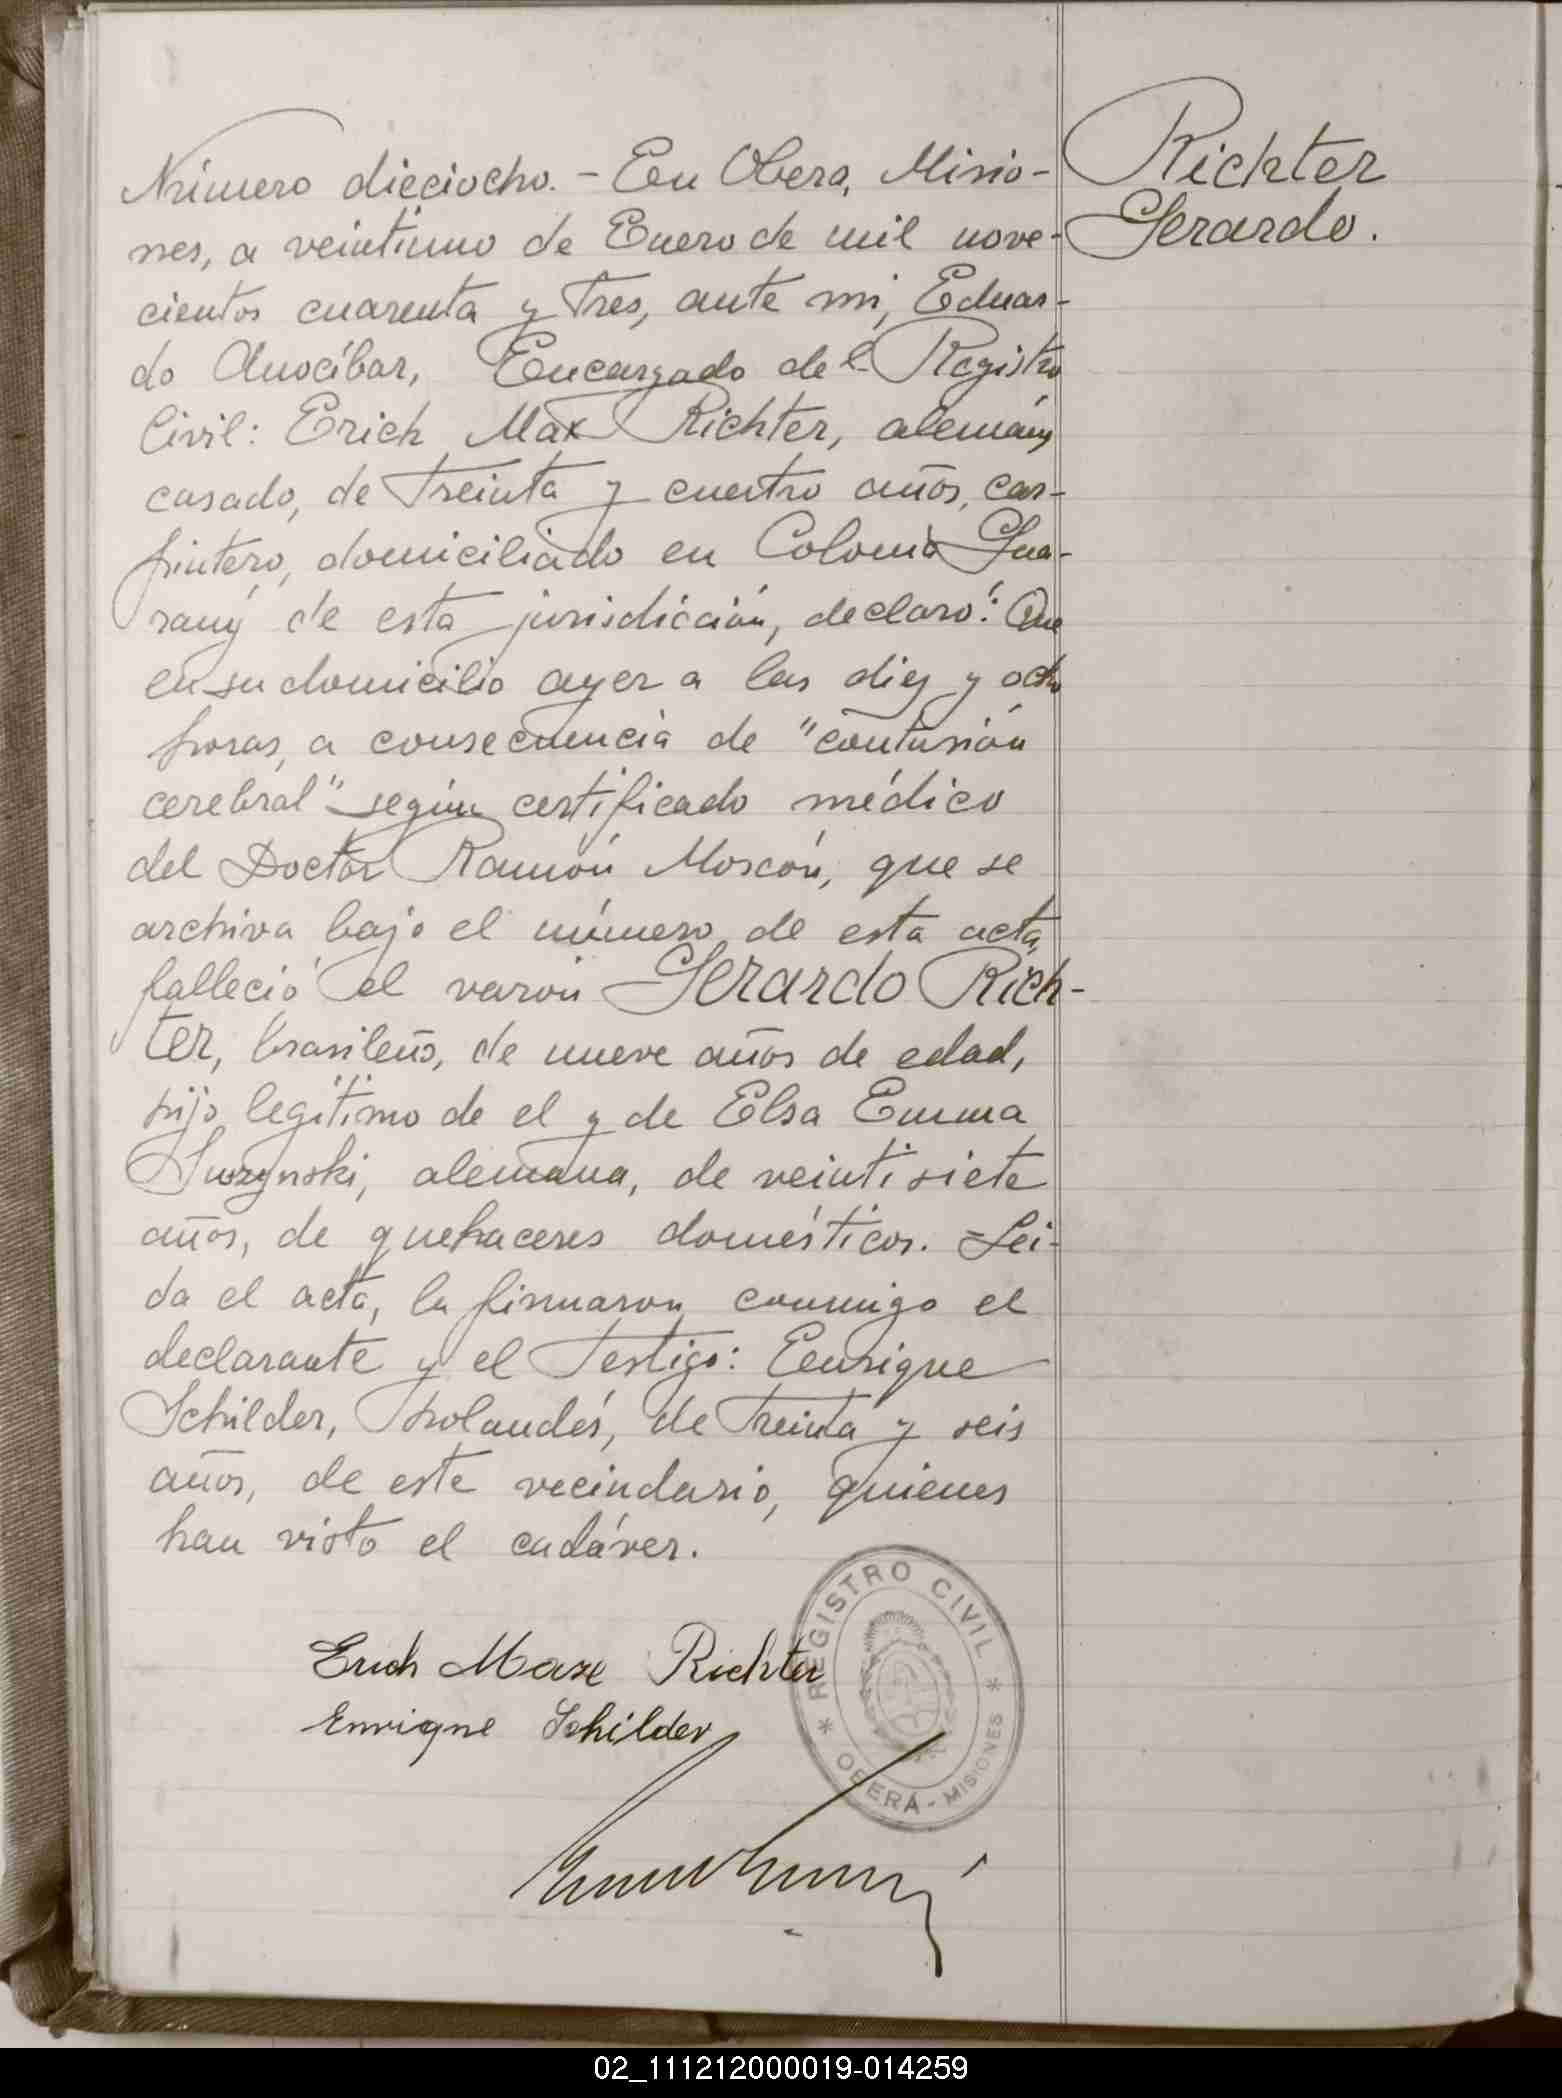 Número dieciocho. - En Obera, Misio-
nes, a veintiuno de Enero de mil nove-
cientos cuarenta y tres, ante mi, Eduar-
do Anocíbar, Encargado del Registro
Civil: Erich Max Richter, alemán,
casado, de treinta y cuatro años, car-
pintero, domiciliado en Colonia Gua-
raný de esta jurisdicción, declaró: Que
en su domicilio ayer a las diez y ocho
horas, a consecuencia de "contusión
cerebral" según certificado médico
del Doctor Ramón Moscón, que se
archiva bajo el número de esta acta,
falleció el varón Gerardo Rich-
ter, brasileño, de nueve años de edad,
hijo legítimo de el y de Elsa Emma
alemana, de veintisiete
años, de quehaceres domésticos. Lei-
da el acta, la firmaron conmigo el
declarante y el testigo: Eenrique
Schilder, holandés, de treinta y seis
años, de este vecindario, quienes
han visto el cadáver.
Richter
Gerardo.
Erich Max Richter
Enrique Schilder
* REGISTRO CIVIL *
OBERÁ - MISIONES
02_111212000019-014259